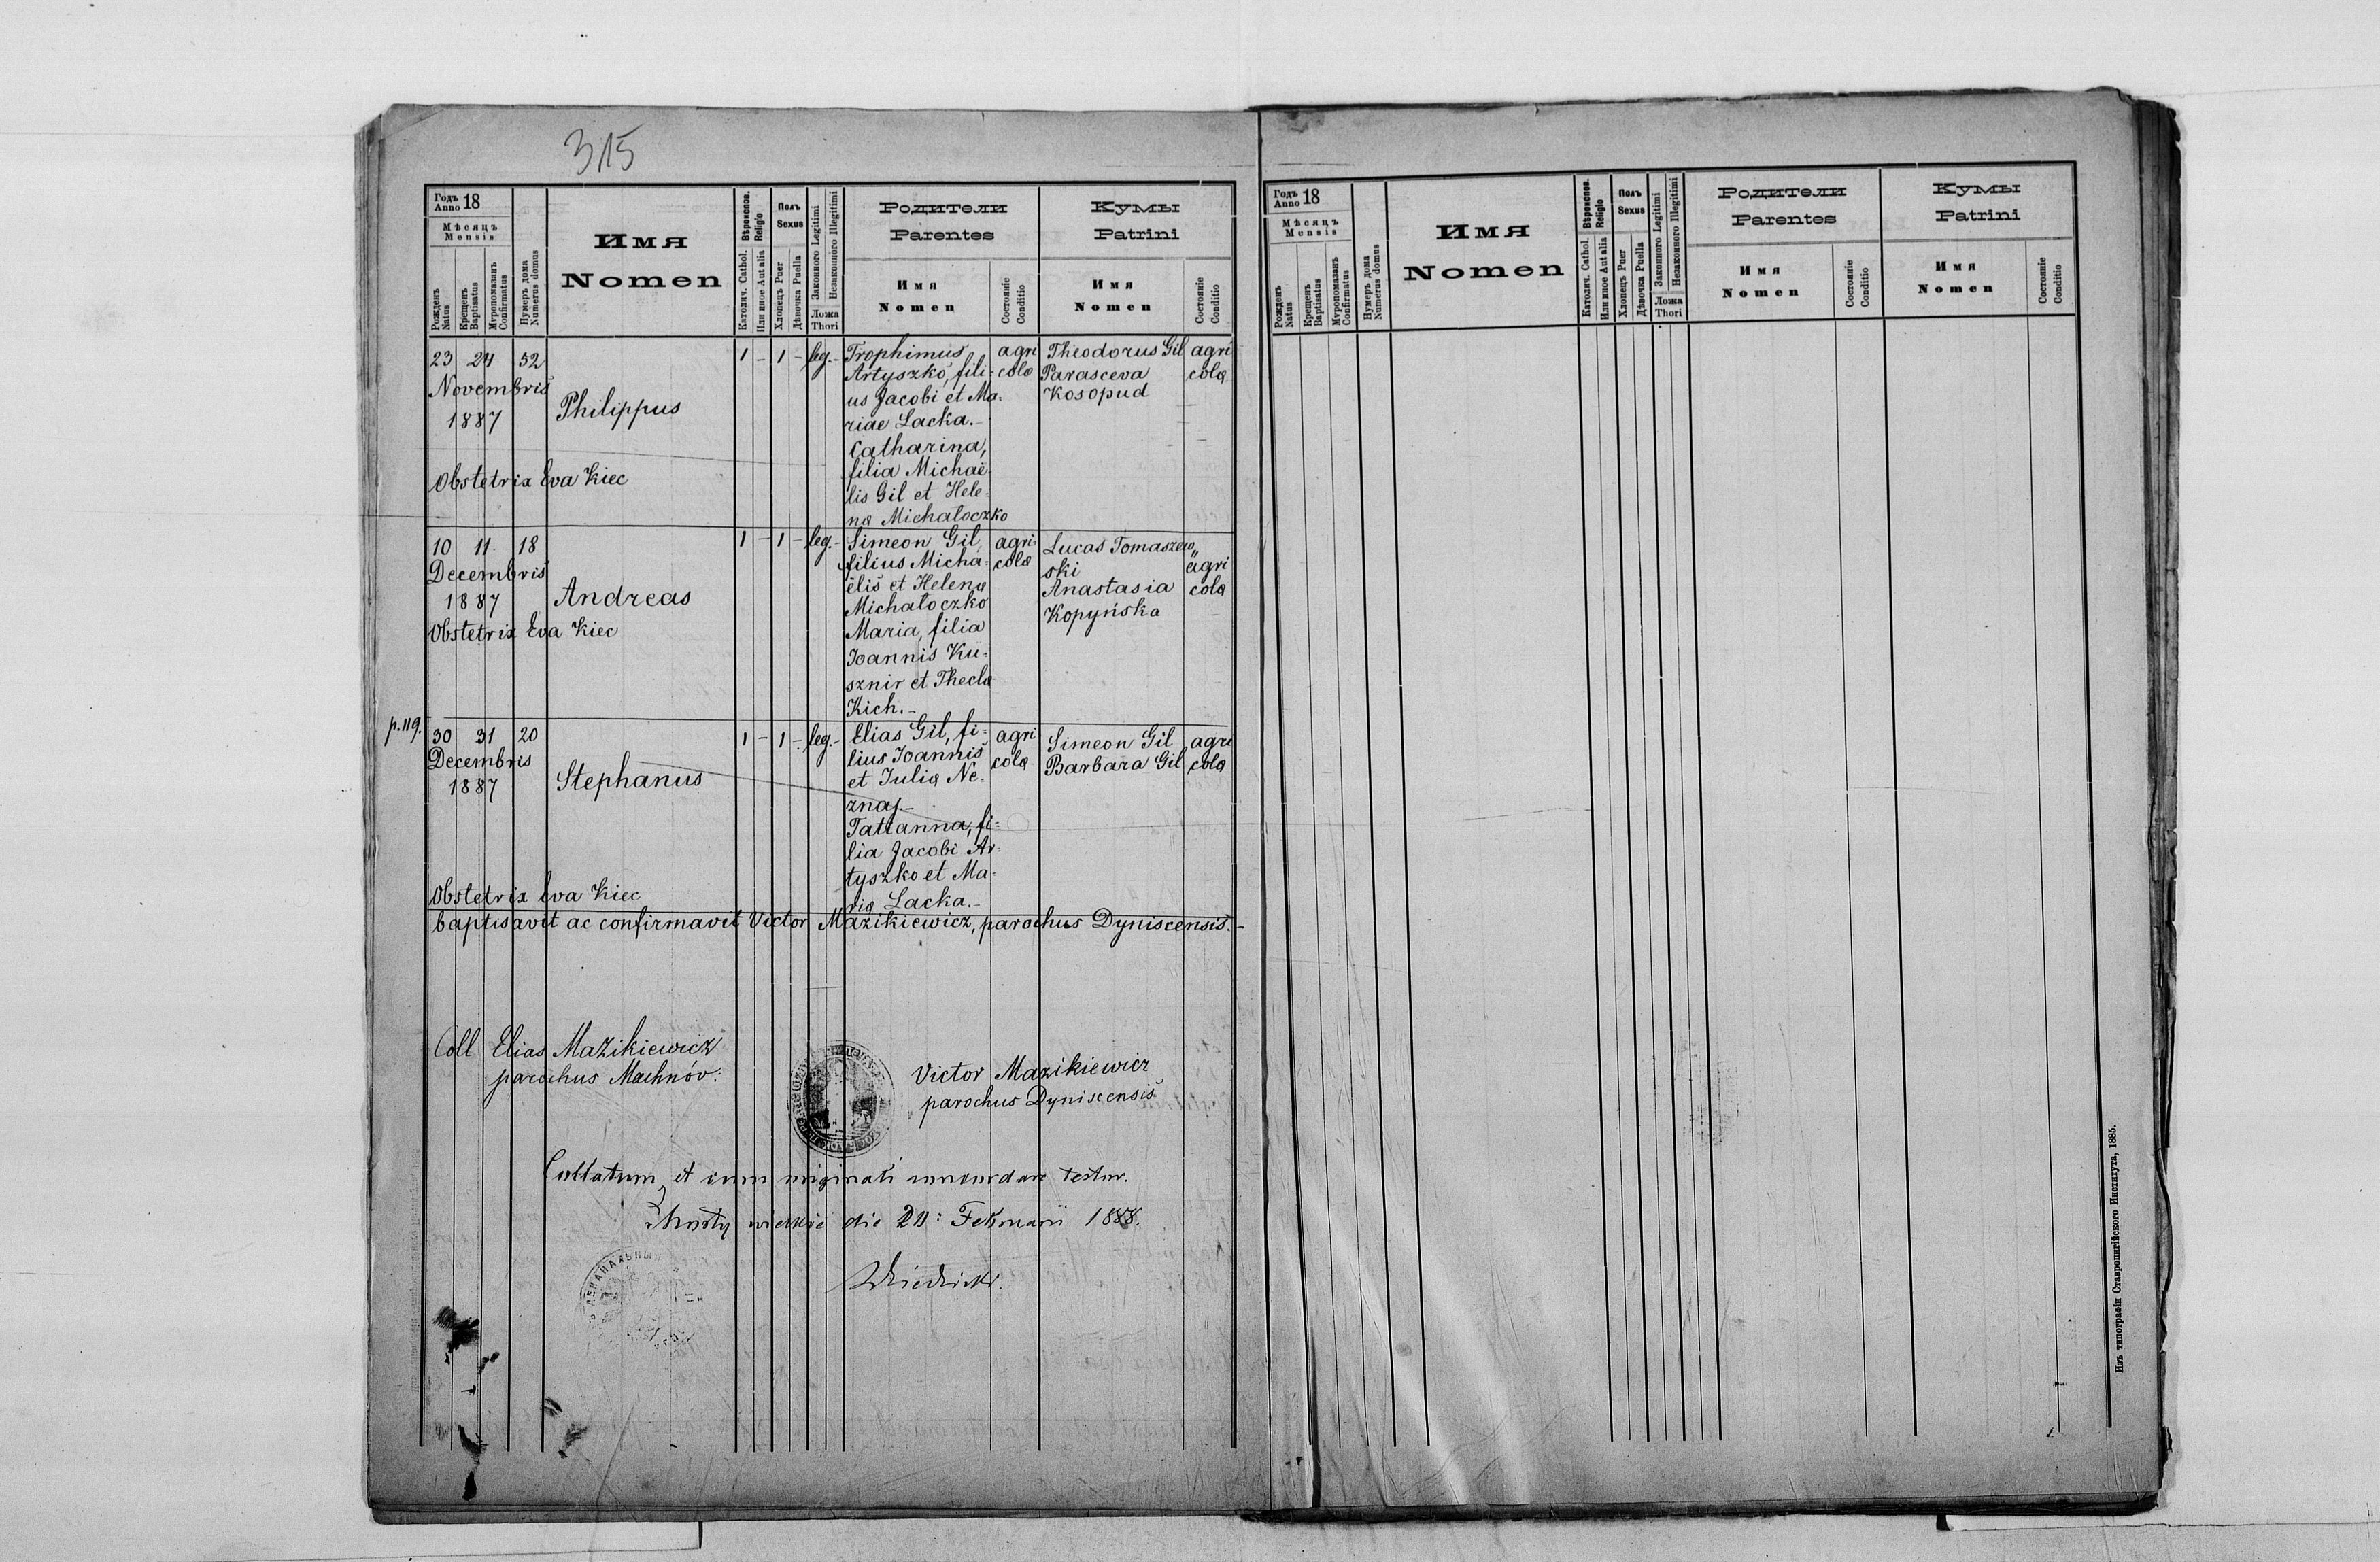 315
Годъ Anno 18
Мѣсяцъ
Mensis
Рожденъ Natus
Крещенъ Baptisatus
Мѵропомазанъ Confirmatus
Нумеръ дома Numerus domus
Имя
Nomen
Вѣроиспов. Religio
Католич. Cathol.
Или иное Aut alia
Полъ
Sexus
Хлопецъ Puer
Дѣвочка Puella
Законного Legitimi
Незаконного Illegitimi
Ложа
Thori
Родители
Parentes
Имя
Nomen
Состояніе
Conditio
Кумы
Patrini
Имя
Nomen
Состояніе
Conditio
23 24 52
Novembris
1887
Philippus
1 - 1 - leg. -
Trophimus
Artyszko, fili=
us Jacobi et Ma=
riae Lacka.-
Catharina,
filia Michaë-
lis Gil et Hele=
na Michałoczko
agri
cola
Theodorus Gil
Parasceva
Kosopud
agri
cola
Obstetrix Eva Kiec
10 11 18
Decembris
1887
Andreas
1 - 1 - leg. -
Simeon Gil,
filius Micha=
ëlis et Helena
Michałoczko
Maria, filia
Joannis Ku=
sznir et Thecla
Kich.-
agri=
cola
Lucas Tomaszew„
ski
Anastasia
Kopyńska
agri
cola
Obstetrix Eva Kiec
p. 119.
30 31 20
Decembris
1887
Stephanus
1 - 1 - leg. -
Elias Gil, fi=
lius Joannis
et Julia Ne=
znaj.-
Tatianna, fi=
lia Jacobi Ar=
tyszko et Ma=
ria Lacka.-
agri
cola
Simeon Gil
Barbara Gil
agri
cola
Obstetrix Eva Kiec
Baptisavit ac confirmavit Victor Mazikiewicz, parochus Dyniscensis.-
Coll Elias Mazikiewicz
parochus Machnów:
Victor Mazikiewicz
parochus Dyniscensis
Collatum et cum originali concordare testor.
die Februarii 1888.
Годъ Anno 18
Мѣсяцъ
Mensis
Рожденъ Natus
Крещенъ Baptisatus
Мѵропомазанъ Confirmatus
Нумеръ дома Numerus domus
Имя
Nomen
Вѣроиспов. Religio
Католич. Cathol.
Или иное Aut alia
Полъ
Sexus
Хлопецъ Puer
Дѣвочка Puella
Законного Legitimi
Незаконного Illegitimi
Ложа
Thori
Родители
Parentes
Имя
Nomen
Состояніе
Conditio
Кумы
Patrini
Имя
Nomen
Состояніе
Conditio
Изъ типографіи Ставропигійского Института, 1885.